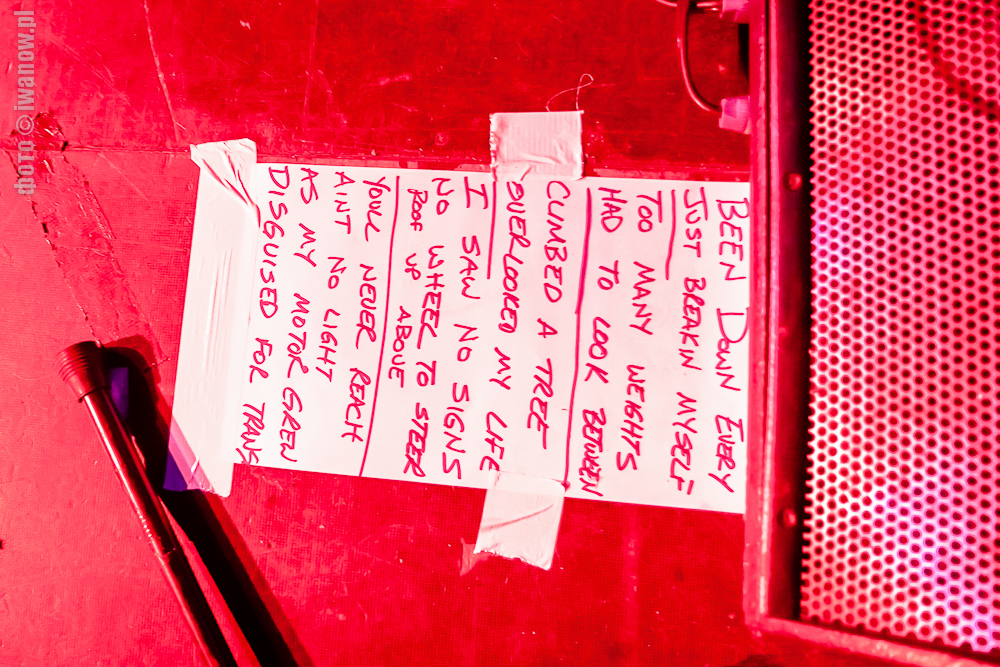 BEEN DOWN EVERY
JUST BREAKIN MYSELF
TOO MANY WEIGHTS
HAD TO LOOK BETWEEN
CLIMBED A TREE
OVERLOOKED MY LIFE
I SAW NO SIGNS
NO WHEEL TO STEER
ROOF UP ABOVE
YOULL NEVER REACH
AINT NO LIGHT
AS MY MOTOR GREW
DISGUISED FOR TRANS
ФОТО © iwanow.pl